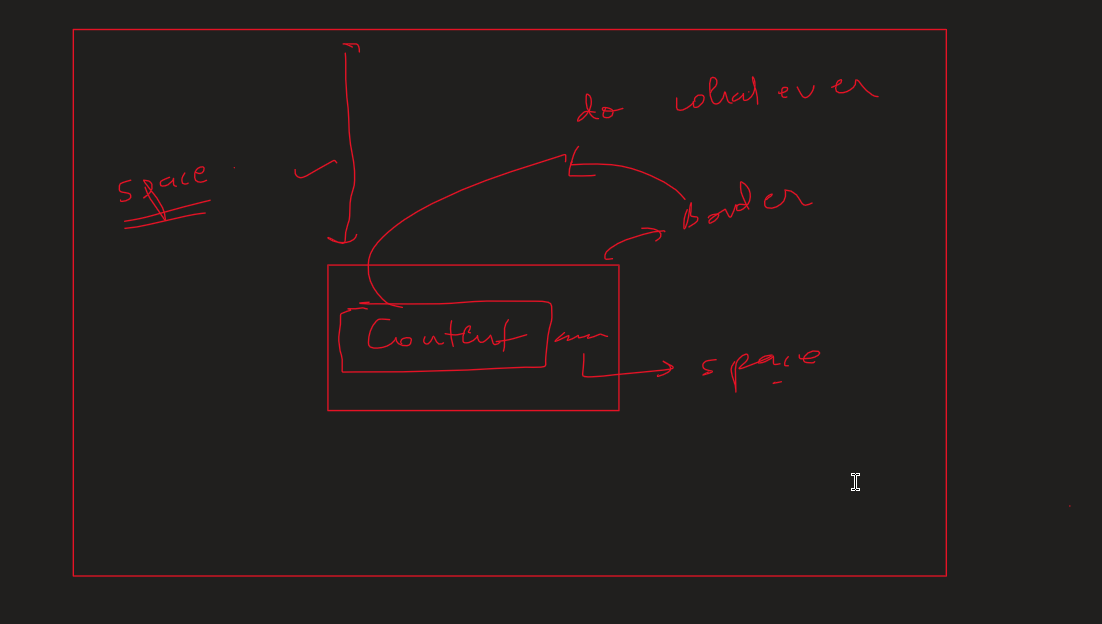 do whatever
space
Border
Content
space